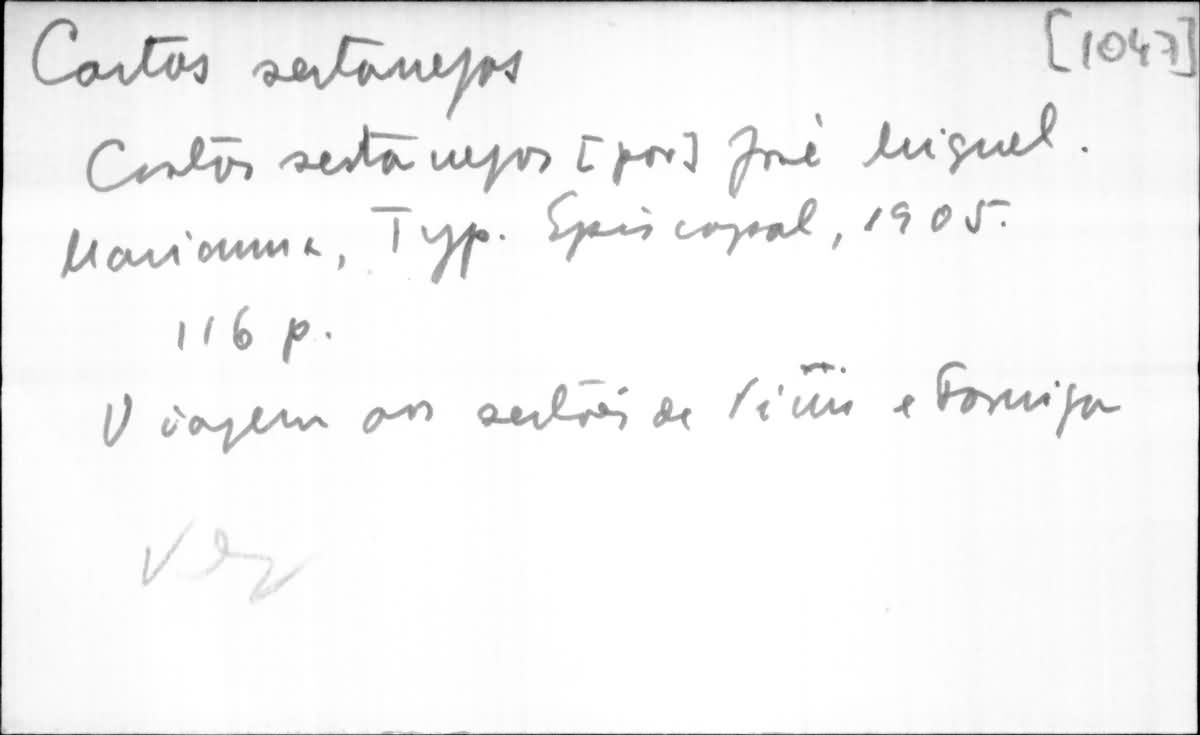 Cartas sertanejas [1047]
Cartas sertanejas [por] José Miguel.
Marianna, Typ. Episcopal, 1905.
116 p.
Viagem aos sertões de e Formiga